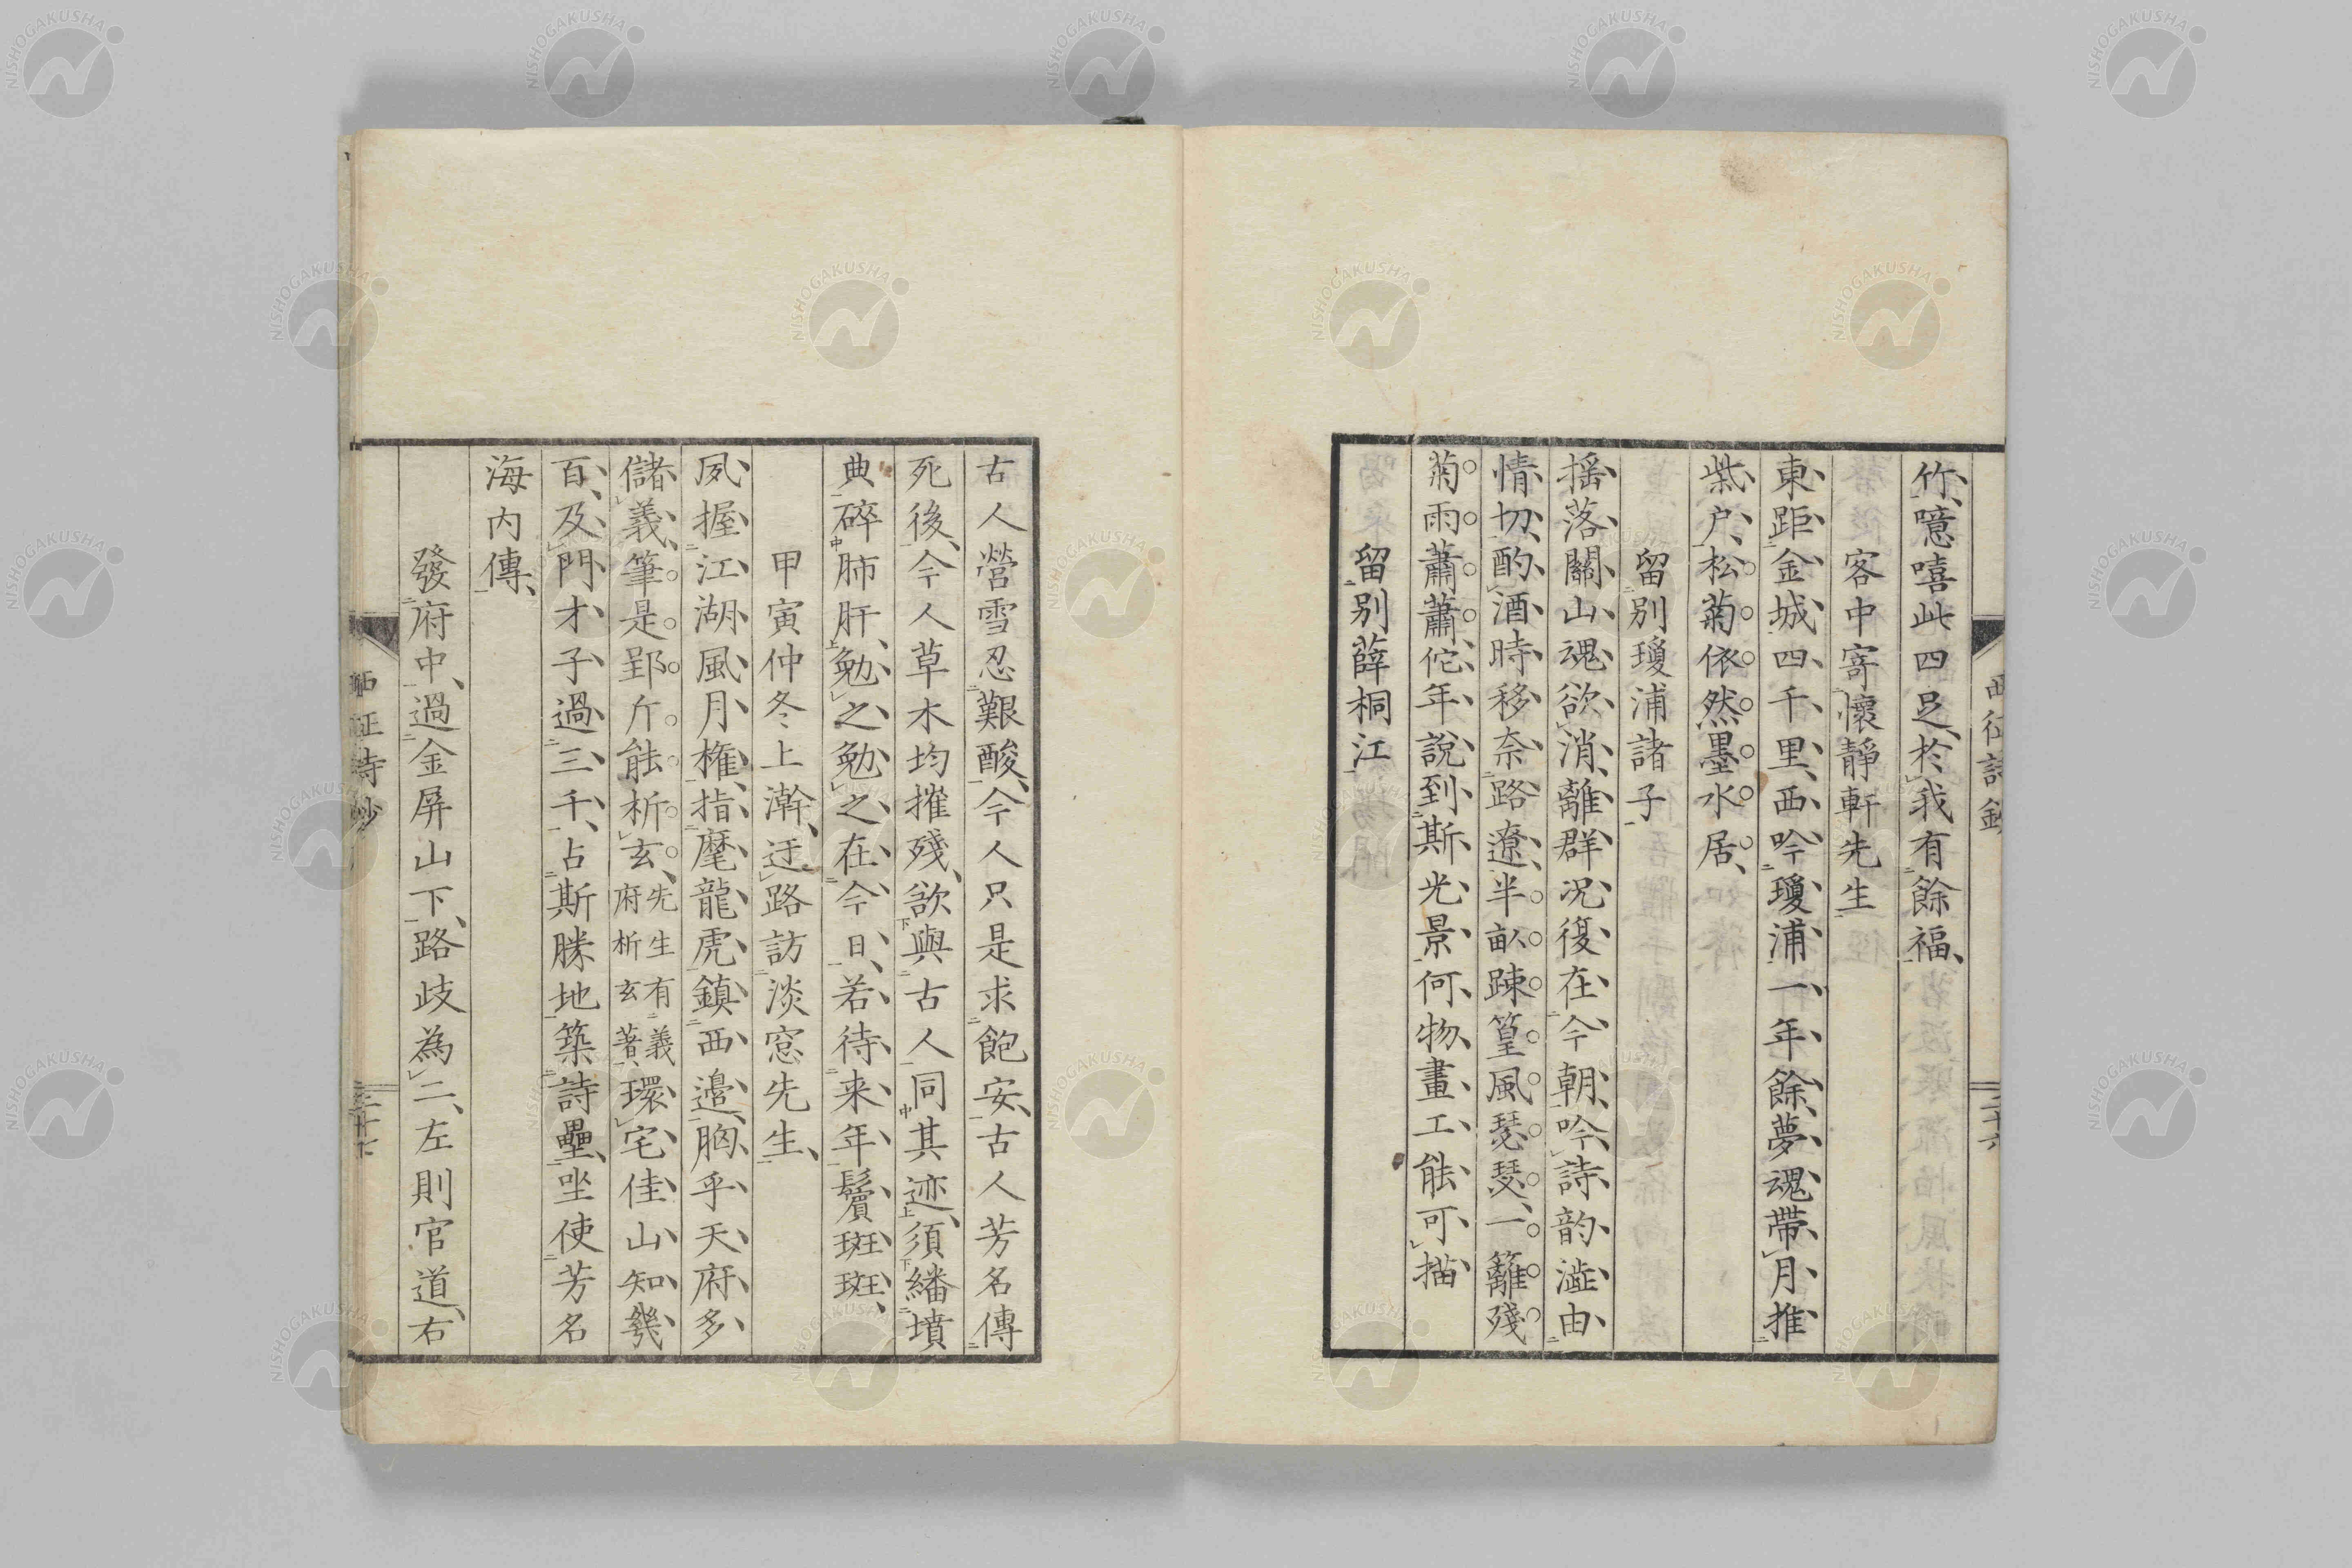 西征詩鈔
三十六
竹、噫嘻此四足、於我有餘福、
客中寄懷靜軒先生
東距金城四千里、西吟瓊浦一年餘、夢魂帶月推
柴戸、松菊依然墨水居、
留別瓊浦諸子
搖落關山魂欲消、離群況復在今朝、吟詩韵澁由
情切、酌酒時移奈路遼、半畝疎篁風瑟瑟、一籬殘
菊雨蕭蕭、佗年說到斯光景、何物畫工能可描
留別薛桐江
古人營雪忍艱酸、今人只是求飽安、古人芳名傳
死後、今人草木均摧殘、欲與古人同其迹、須繙墳
典碎肺肝、勉之勉之在今日、若待来年鬢斑斑、
甲寅仲冬上澣、迂路訪淡窓先生、
夙握江湖風月權、指麾龍虎鎮西邉、胸乎天府多
儲義、筆是郢斤能析玄、先生有義府析玄著、環宅佳山知幾
百、及門才子過三千、占斯勝地築詩壘、坐使芳名
海内傳、
發府中、過金屏山下、路歧為二、左則官道、右
西征詩鈔
三十七